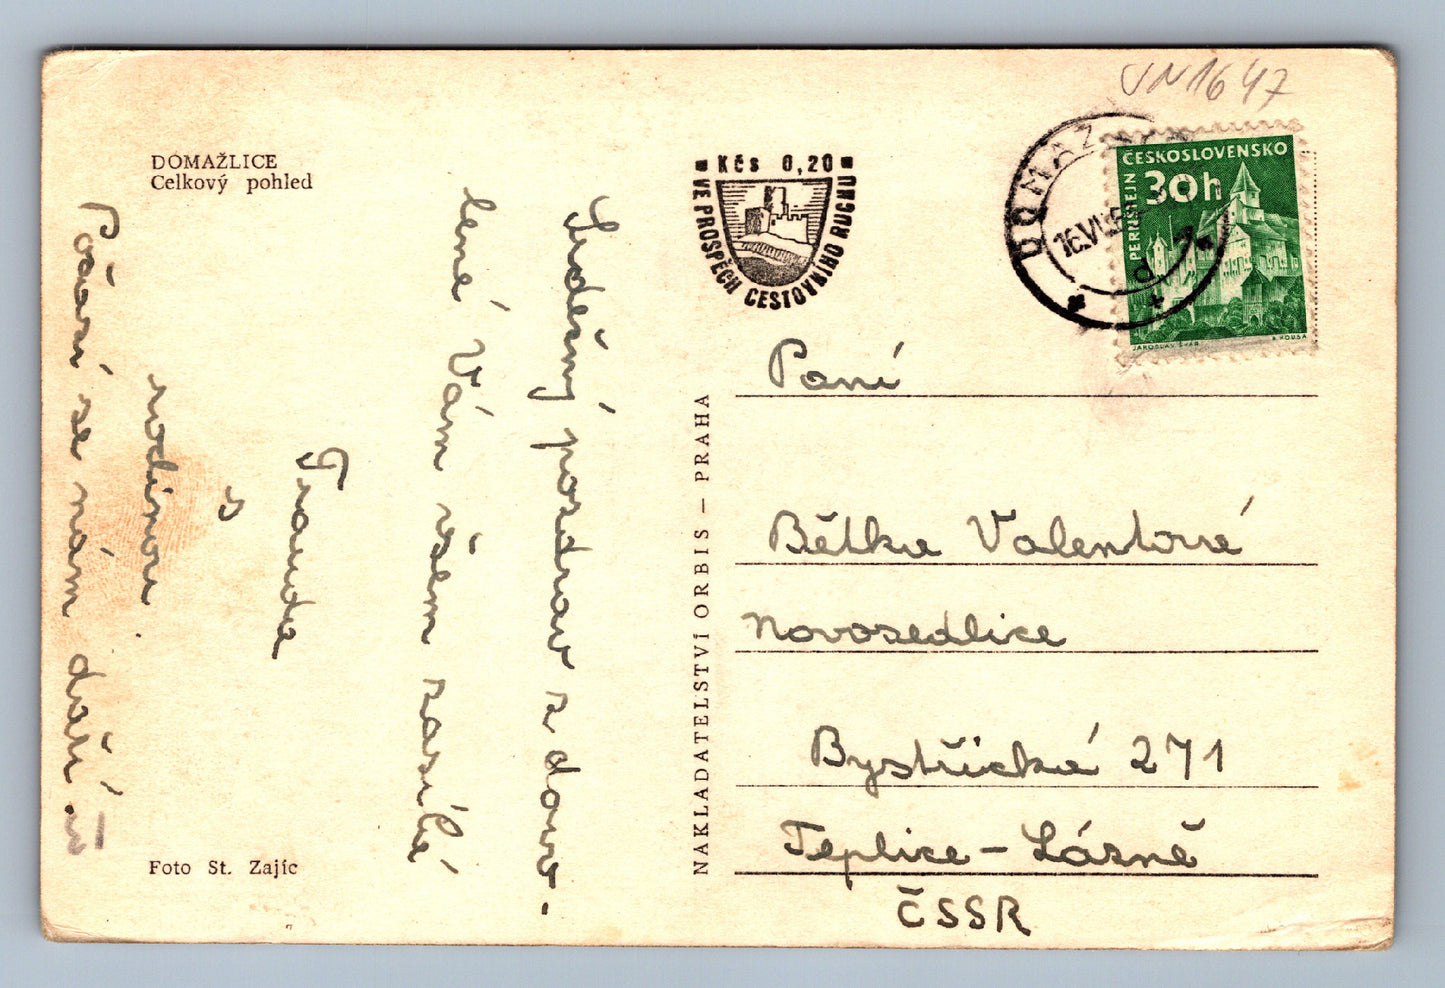 VN1647
DOMAŽLICE
Celkový pohled
Kčs 0,20
VE PROSPĚCH CESTOVNÍHO RUCHU
DOMAŽ
16.VI.6
d
ČESKOSLOVENSKO
30h
PERNŠTEJN
JAROSLAV ŠVÁB
J. ROUSA
Srdečný pozdrav z dovo-
lené Vám všem zasílá
Trauda
s
rodinou.
Počasí se nám daří.
NAKLADATELSTVÍ ORBIS – PRAHA
Paní
Bětka Valentová
Novosedlice
Bystřická 271
Teplice – Lázně
ČSSR
Foto St. Zajíc